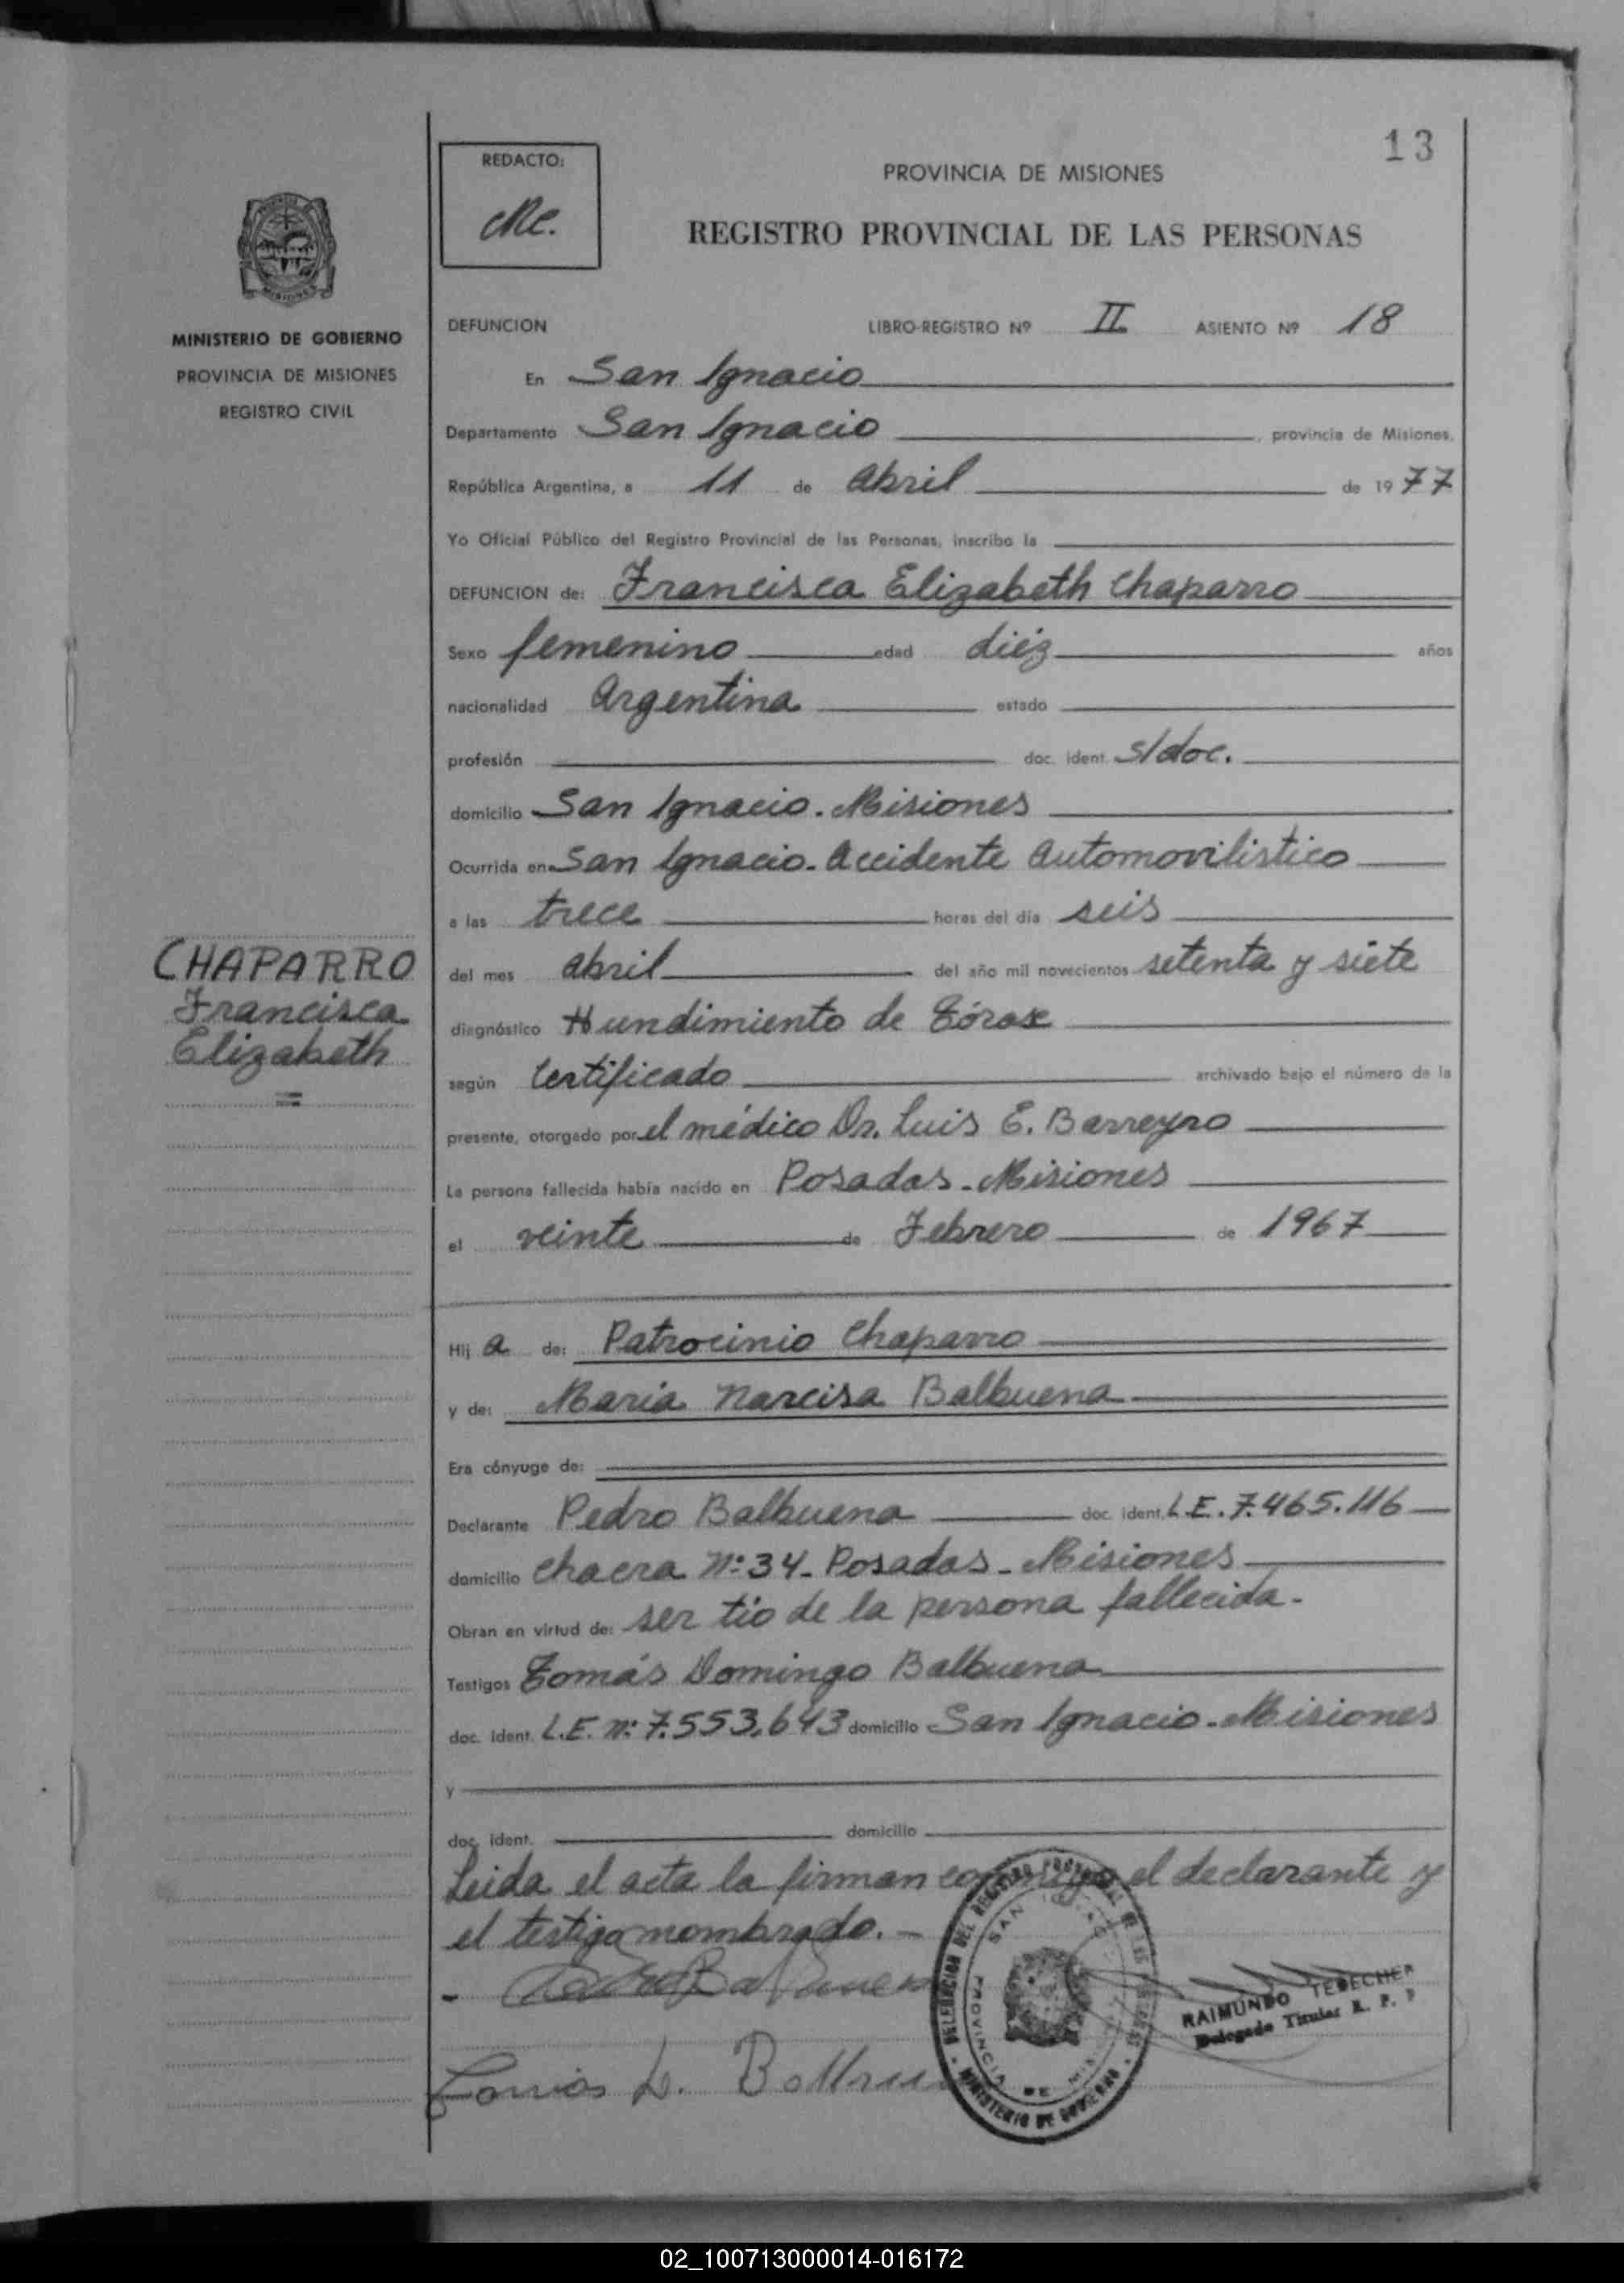 13
REDACTO:
PROVINCIA DE MISIONES
REGISTRO PROVINCIAL DE LAS PERSONAS
MINISTERIO DE GOBIERNO
PROVINCIA DE MISIONES
REGISTRO CIVIL
DEFUNCION LIBRO-REGISTRO Nº II ASIENTO Nº 18
En San Ignacio
Departamento San Ignacio, provincia de Misiones,
República Argentina, a 11 de abril de 1977
Yo Oficial Público del Registro Provincial de las Personas, inscribo la
DEFUNCION de: Francisca Elizabeth Chaparro
Sexo femenino edad diéz años
nacionalidad Argentina estado
profesión doc. ident. s/doc.
domicilio San Ignacio. Misiones
Ocurrida en San Ignacio. Accidente Automovilistico
a las trece horas del día seis
CHAPARRO
Francisca
Elizabeth
=
del mes abril del año mil novecientos setenta y siete
diagnóstico Hundimiento de Tórax
según Certificado archivado bajo el número de la
presente, otorgado por el médico Dr. Luis E. Barreyro
La persona fallecida había nacido en Posadas - Misiones
el veinte de Febrero de 1967
Hija de: Patrocinio Chaparro
y de: Maria Narcisa Balbuena
Era cónyuge de:
Declarante Pedro Balbuena doc. ident. L.E. 7.465.116
domicilio chacra Nº 34 - Posadas - Misiones
Obran en virtud de: ser tio de la persona fallecida.
Testigos Tomás Domingo Balbuena
doc. ident. L.E. Nº 7.553.643 domicilio San Ignacio - Misiones
y
doc. ident. domicilio
Leida el acta la firman conmigo el declarante y
el testigo nombrado. -
RAIMUNDO
Delegado Titular R. P. P
DELEGACION DEL REGISTRO PROVINCIAL DE LAS
SAN
PROVINCIA DE
MINISTERIO DE GOBIERNO
02_100713000014-016172